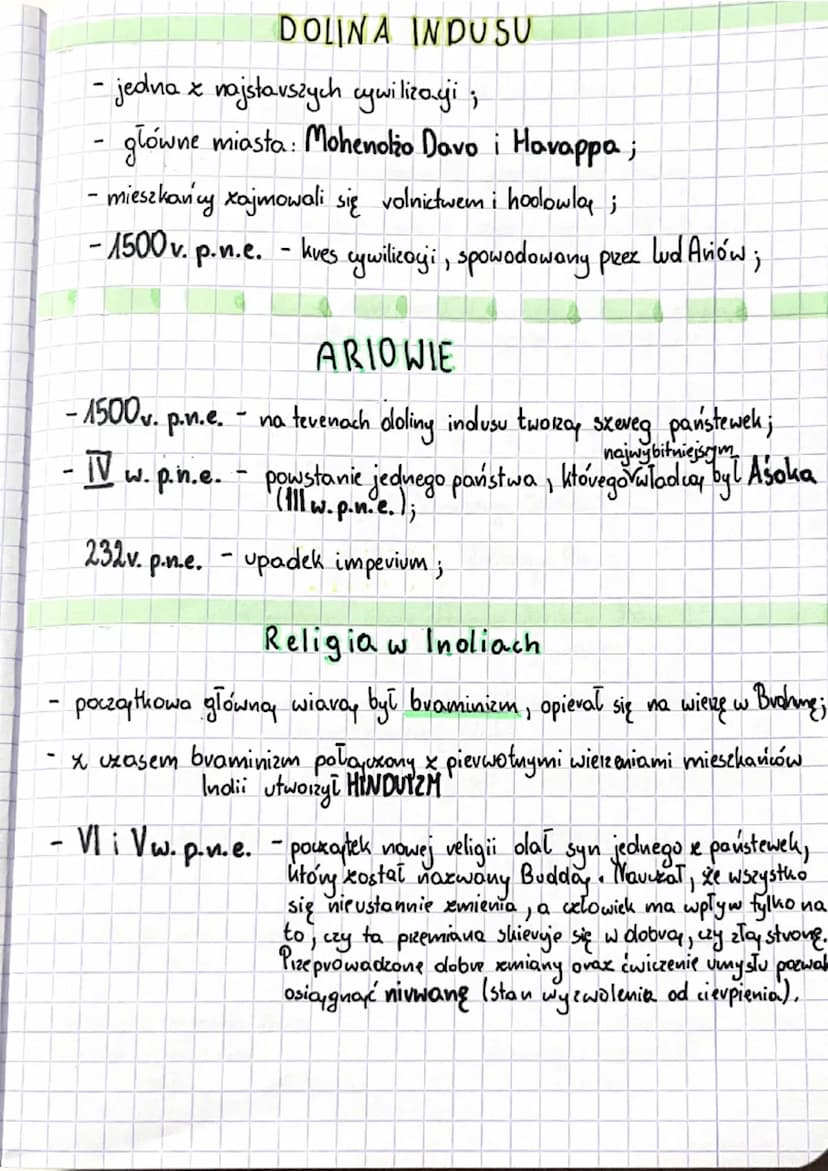 DOLINA INDUSU
- jedna z najstarszych cywilizacji ;
- główne miasta: Mohendżo Daro i Harappa ;
- mieszkańcy zajmowali się rolnictwem i hodowlą ;
- 1500 r. p.n.e. - kres cywilizacji, spowodowany przez lud Ariów ;
ARIOWIE
- 1500 r. p.n.e. - na terenach doliny indusu tworzą szereg państewek ;
najwybitniejszym
- IV w. p.n.e. - powstanie jednego państwa, którego władcą był Aśoka
(III w. p.n.e.) ;
232 r. p.n.e. - upadek imperium ;
Religia w Indiach
- początkowa główną wiarą był braminizm, opierał się na wierzę w Brahmę ;
- z czasem braminizm połączony z pierwotnymi wierzeniami mieszkańców
Indii utworzył HINDUIZM
- VI i V w. p.n.e. - początek nowej religii dał syn jednego z państewek,
który został nazwany Buddą. Nauczał, że wszystko
się nieustannie zmienia, a człowiek ma wpływ tylko na
to, czy ta przemiana skieruje się w dobrą, czy złą stronę.
Przeprowadzone dobre zmiany oraz ćwiczenie umysłu pozwal
osiągnąć nirwanę (stan wyzwolenia od cierpienia).